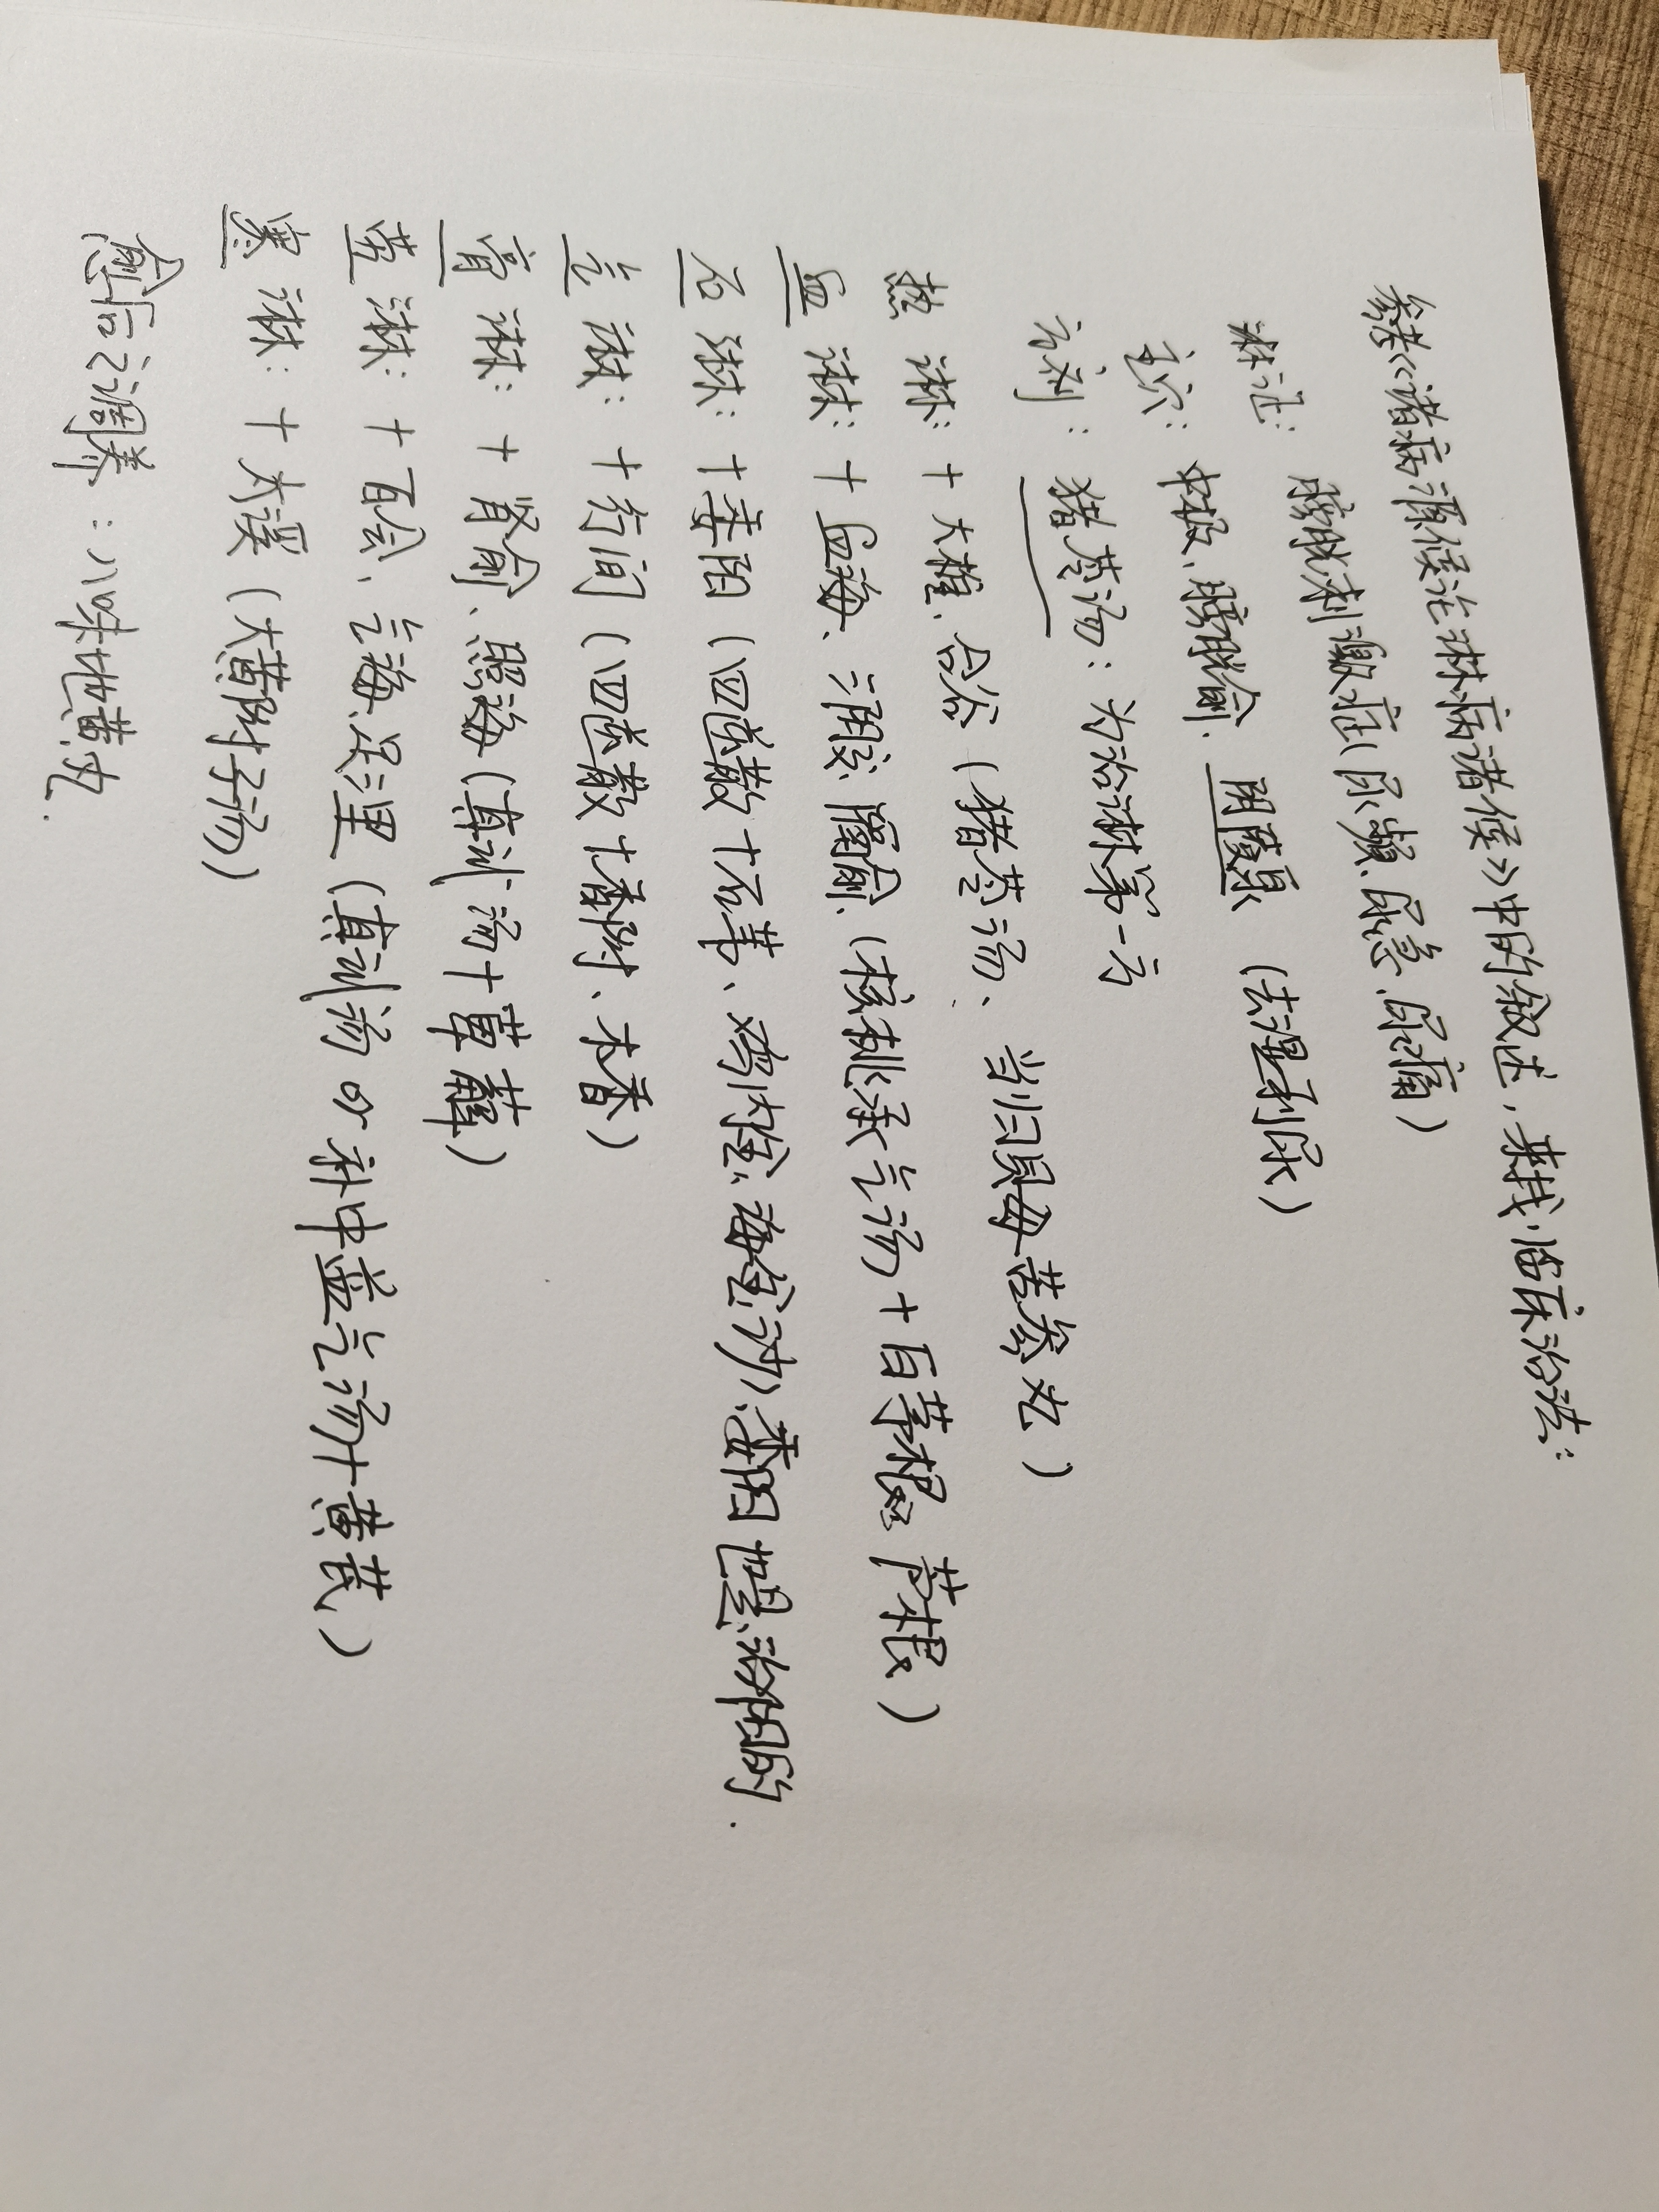 参考《诸病源候论淋病诸候》中的叙述,来找临床治法:
淋证: 膀胱刺激症(尿频、尿急、尿痛)
主穴: 中极、膀胱俞、阴陵泉 (去湿利尿)
方剂: 猪苓汤:为治淋第一方
热淋:+大椎、合谷(猪苓汤、当归贝母苦参丸)
血淋:+血海、三阴交、膈俞、(核桃承气汤+白茅根 芦根)
石淋:+委阳(四逆散+石苇、鸡内金、海金沙)、委阳也是治腰的.
气淋:+行间(四逆散+香附、木香)
膏淋:+肾俞、照海(真武汤+萆薢)
劳淋:+百会、气海、足三里(真武汤 or 补中益气汤+黄芪)
寒淋:+太溪(大黄附子汤)
愈后之调养:八味地黄丸.